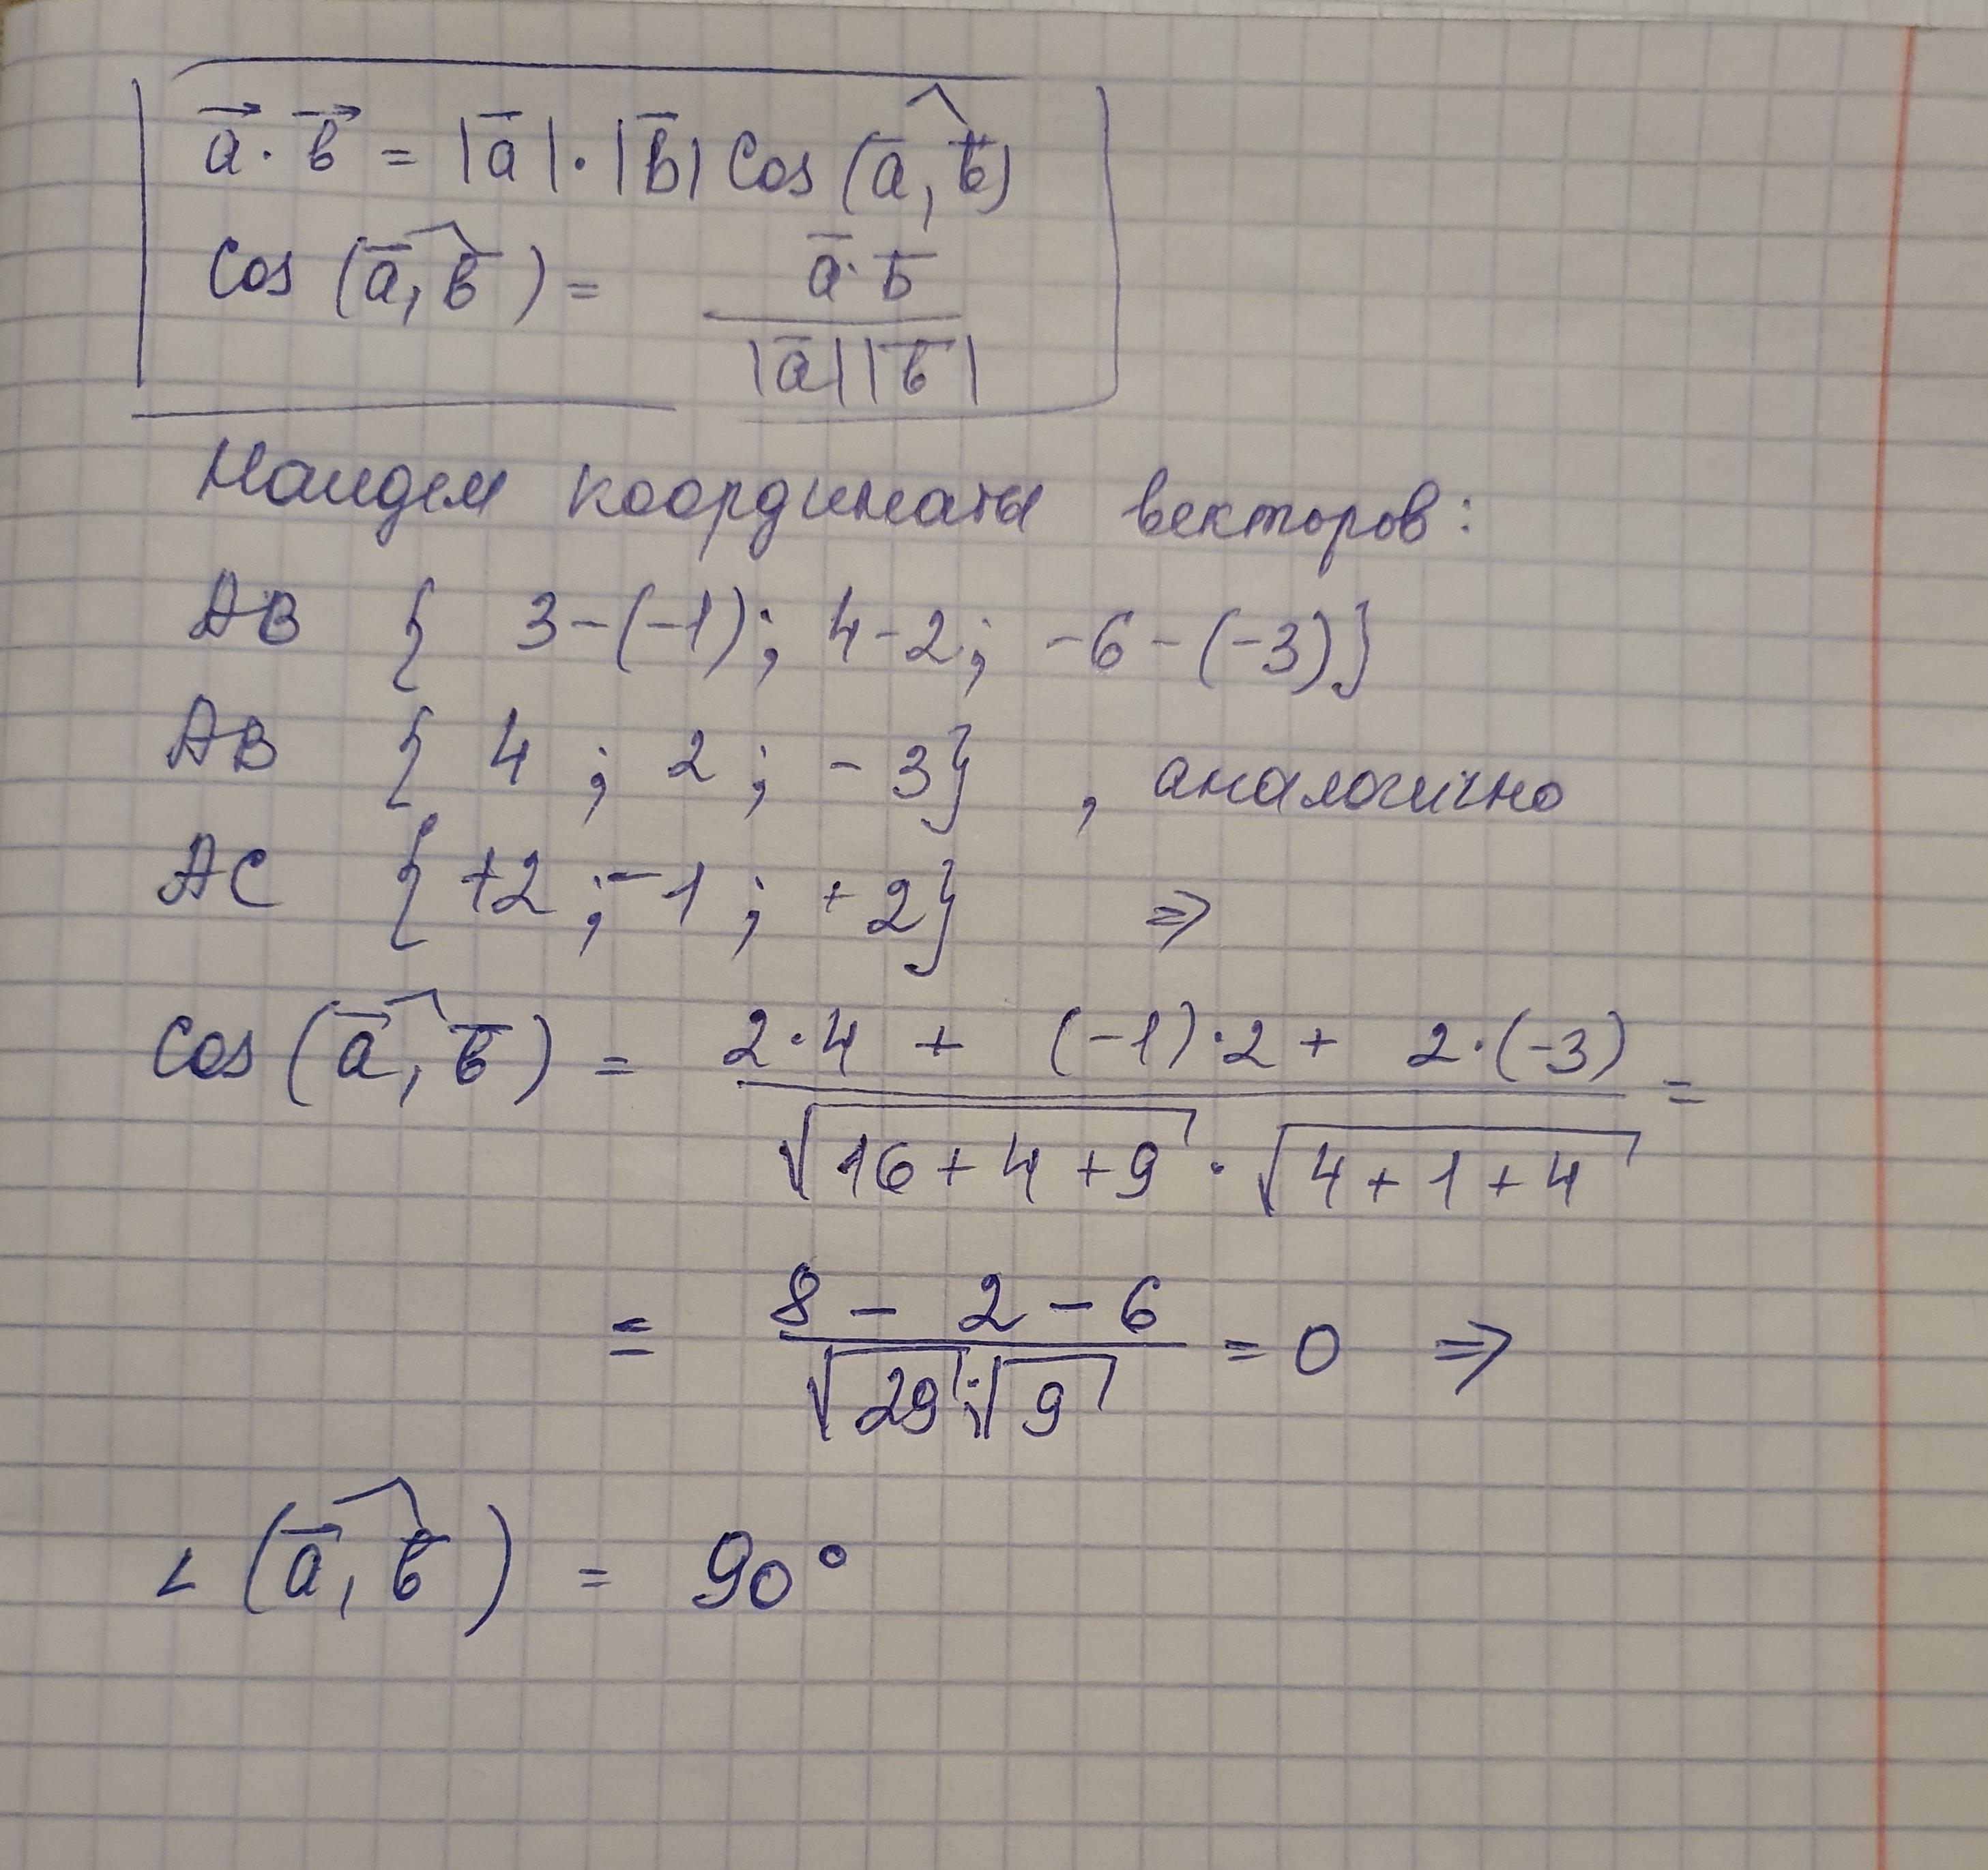 a · b = |a| · |b| Cos (a, b)
Cos (a, b) = a · b / |a| |b|
Найдем координаты векторов:
AB { 3-(-1); 4-2; -6-(-3)}
AB { 4 ; 2 ; -3} , аналогично
AC { +2 ; -1 ; +2} ⇒
Cos (a, b) = 2·4 + (-1)·2 + 2·(-3) / √16+4+9 · √4+1+4 =
= 8 - 2 - 6 / √29 · √9 = 0 ⇒
∠ (a, b) = 90°